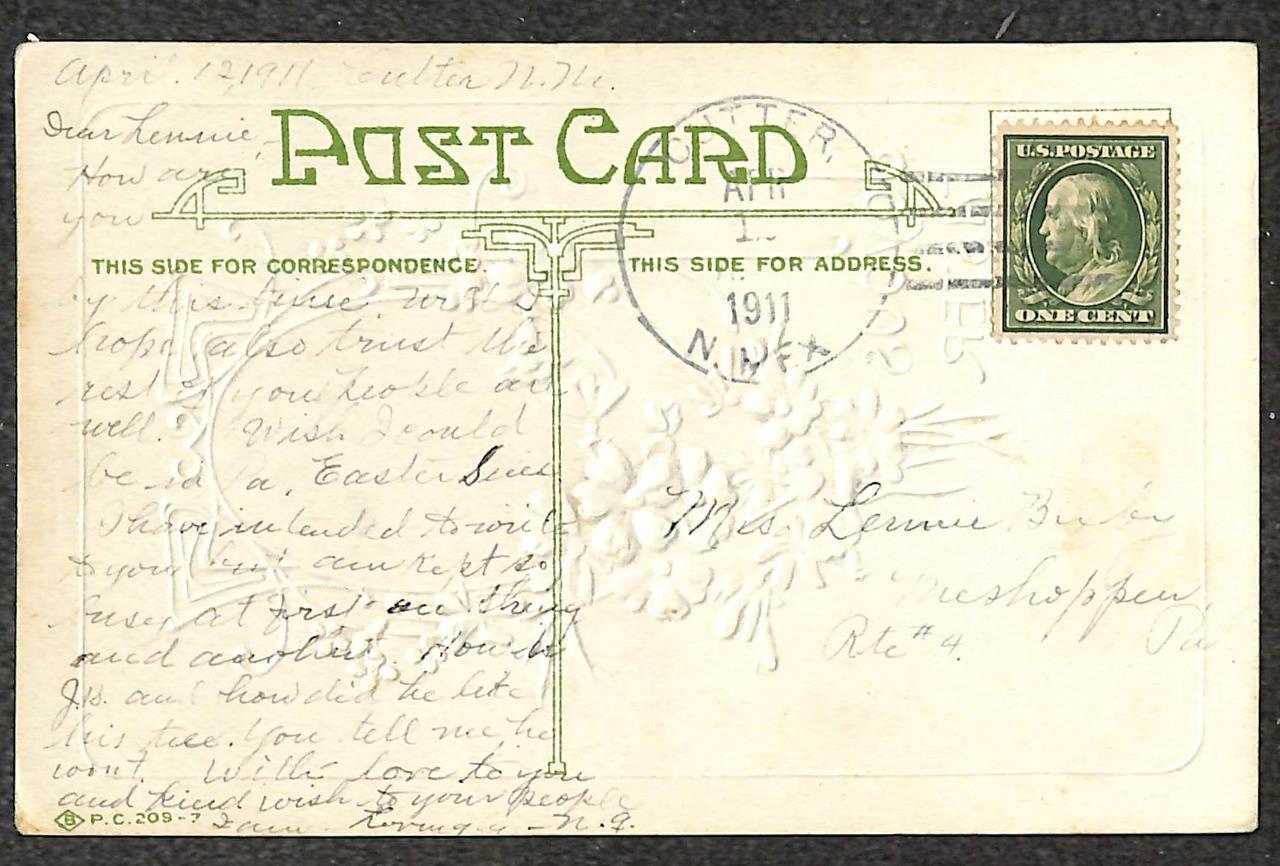 April 12, 1911. Cutter N.M.
Dear Lennie,
How are
you
POST CARD
THIS SIDE FOR CORRESPONDENCE.
THIS SIDE FOR ADDRESS.
CUTTER.
APR
1911
N. MEX
U.S. POSTAGE
ONE CENT
by this time well I
hope, also trust the
rest of you people are
well. Wish I could
be in Pa. Easter
I have intended to write
to you but am kept so
busy at first one thing
and another. How is
J.B. and how did he like
his tree. You tell me he
wont. With love to you
and kind wish to your people
I am
P.C. 209-7
Mrs. Lennie Bixby
Meshoppen
Rte #4. Pa